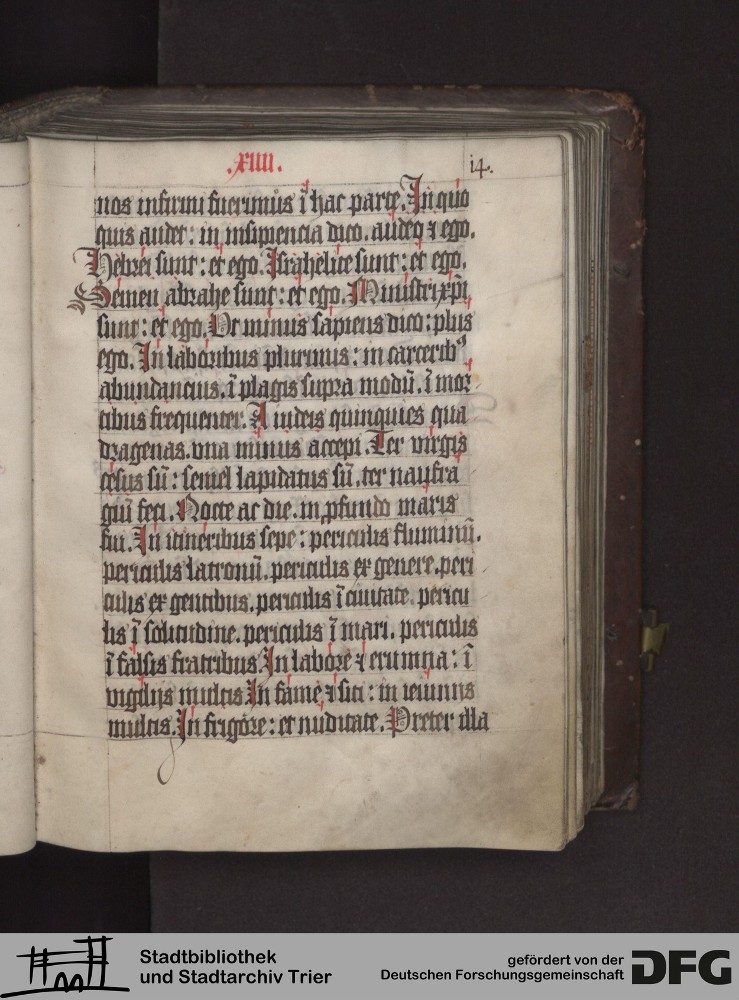 .xiiii.
14.
nos infirmi fuerimus ī hac parte. In quo
quis audet: in insipiencia dico. audeo ⁊ ego.
Hebrei sunt: et ego. Israhelite sunt: et ego.
Semen abrahe sunt: et ego. Ministri xpī
sunt: et ego. Vt minus sapiens dico: plus
ego. In laboribus plurimis: in carcerib⁹
abundancius. ī plagis supra modū. ī mor
tibus frequenter. A iudeis quinquies qua
dragenas. vna minus accepi. Ter virgis
cesus sū: semel lapidatus sū. ter naufra
giū feci. Nocte ac die. in ꝓfundo maris
fui. In itineribus sepe: periculis fluminū.
periculis latronū. periculis ex genere. peri
culis ex gentibus. periculis ī ciuitate. pericu
lis ī solitudine. periculis ī mari. periculis
ī falsis fratribus. In labore ⁊ erumna: ī
vigilijs multis. In fame ⁊ siti: in ieiuniis
multis. In frigore: et nuditate. Preter illa
Stadtbibliothek
und Stadtarchiv Trier
gefördert von der
Deutschen Forschungsgemeinschaft
DFG